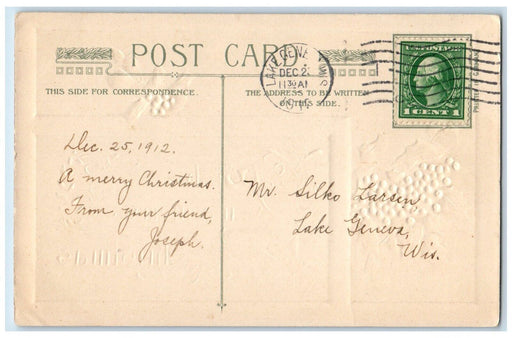 POST CARD
THIS SIDE FOR CORRESPONDENCE.
THE ADDRESS TO BE WRITTEN
ON THIS SIDE.
LAKE GENEVA, WIS
DEC 2
11 30 A
U.S. POSTAGE
1 CENT 1
Dec. 25, 1912.
A merry Christmas.
From your friend,
Joseph.
Mr. Silko Larsen,
Lake Geneva,
Wis.